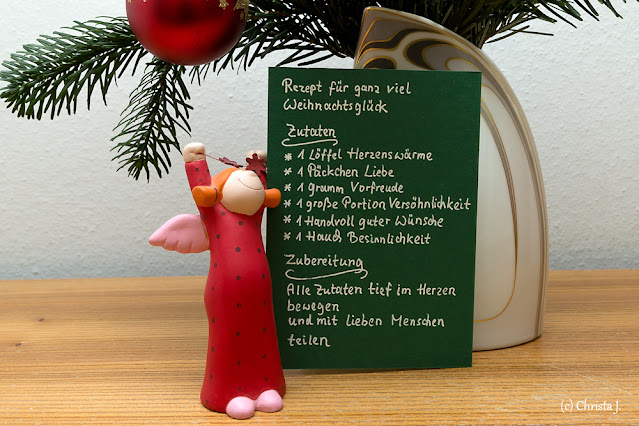 Rezept für ganz viel
Weihnachtsglück
Zutaten
* 1 Löffel Herzenswärme
* 1 Päckchen Liebe
* 1 gramm Vorfreude
* 1 große Portion Versöhnlichkeit
* 1 Handvoll guter Wünsche
* 1 Hauch Besinnlichkeit
Zubereitung
Alle Zutaten tief im Herzen
bewegen
und mit lieben Menschen
teilen
(c) Christa J.